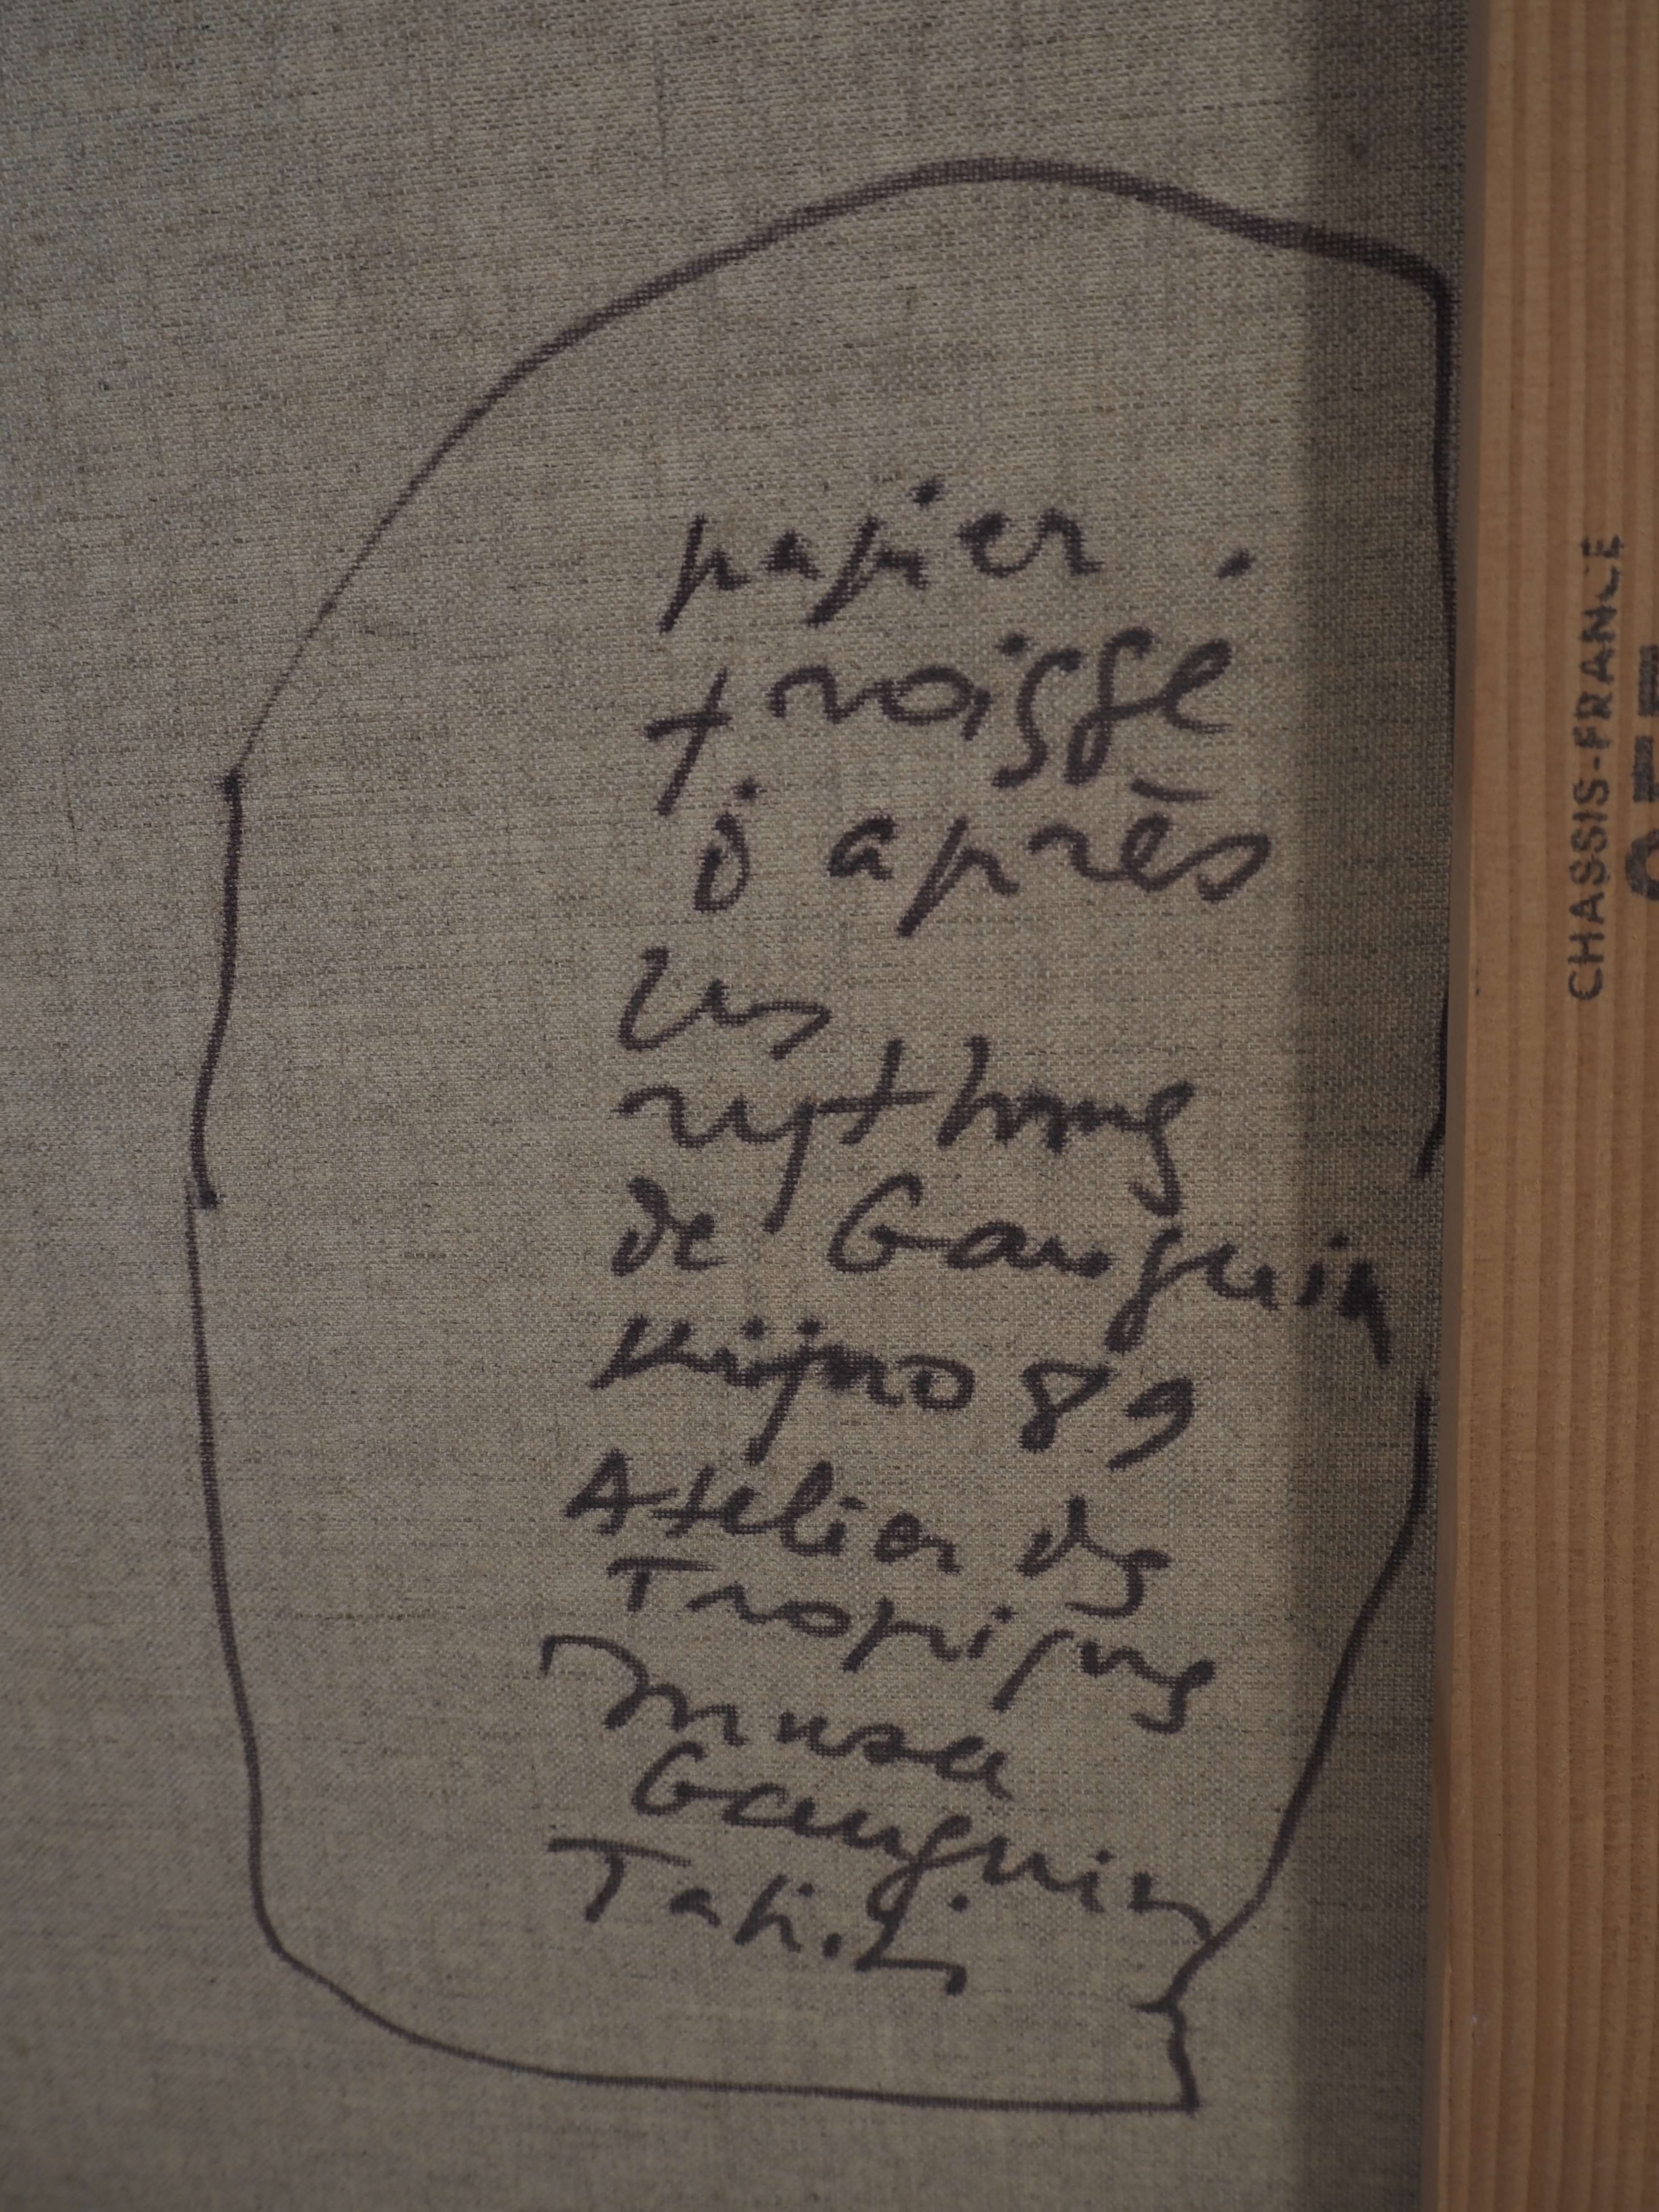 papier
froissé
d'après
les
rythmes
de Gauguin
Kijno 89
Atelier des
Tropiques
Musée
Gauguin
Tahiti
CHASSIS-FRANCE